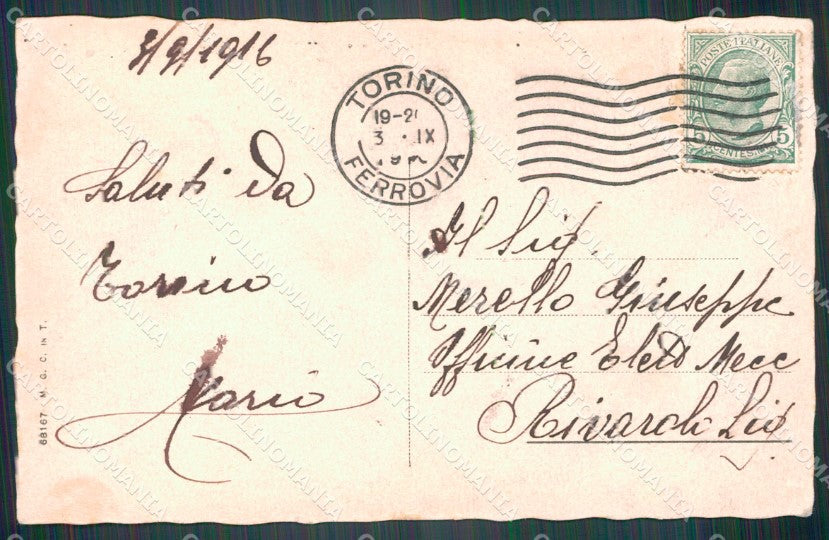 3/9/1916
TORINO
19-2
3 . IX
FERROVIA
POSTE ITALIANE
5 CENTESIMI 5
Saluti da
Torino
Mario
Il Sig.
Merello Giuseppe
Officine Elett Mecc
Rivarolo Lig
68167 M. G. C. IN T.
CARTOLINOMANIA